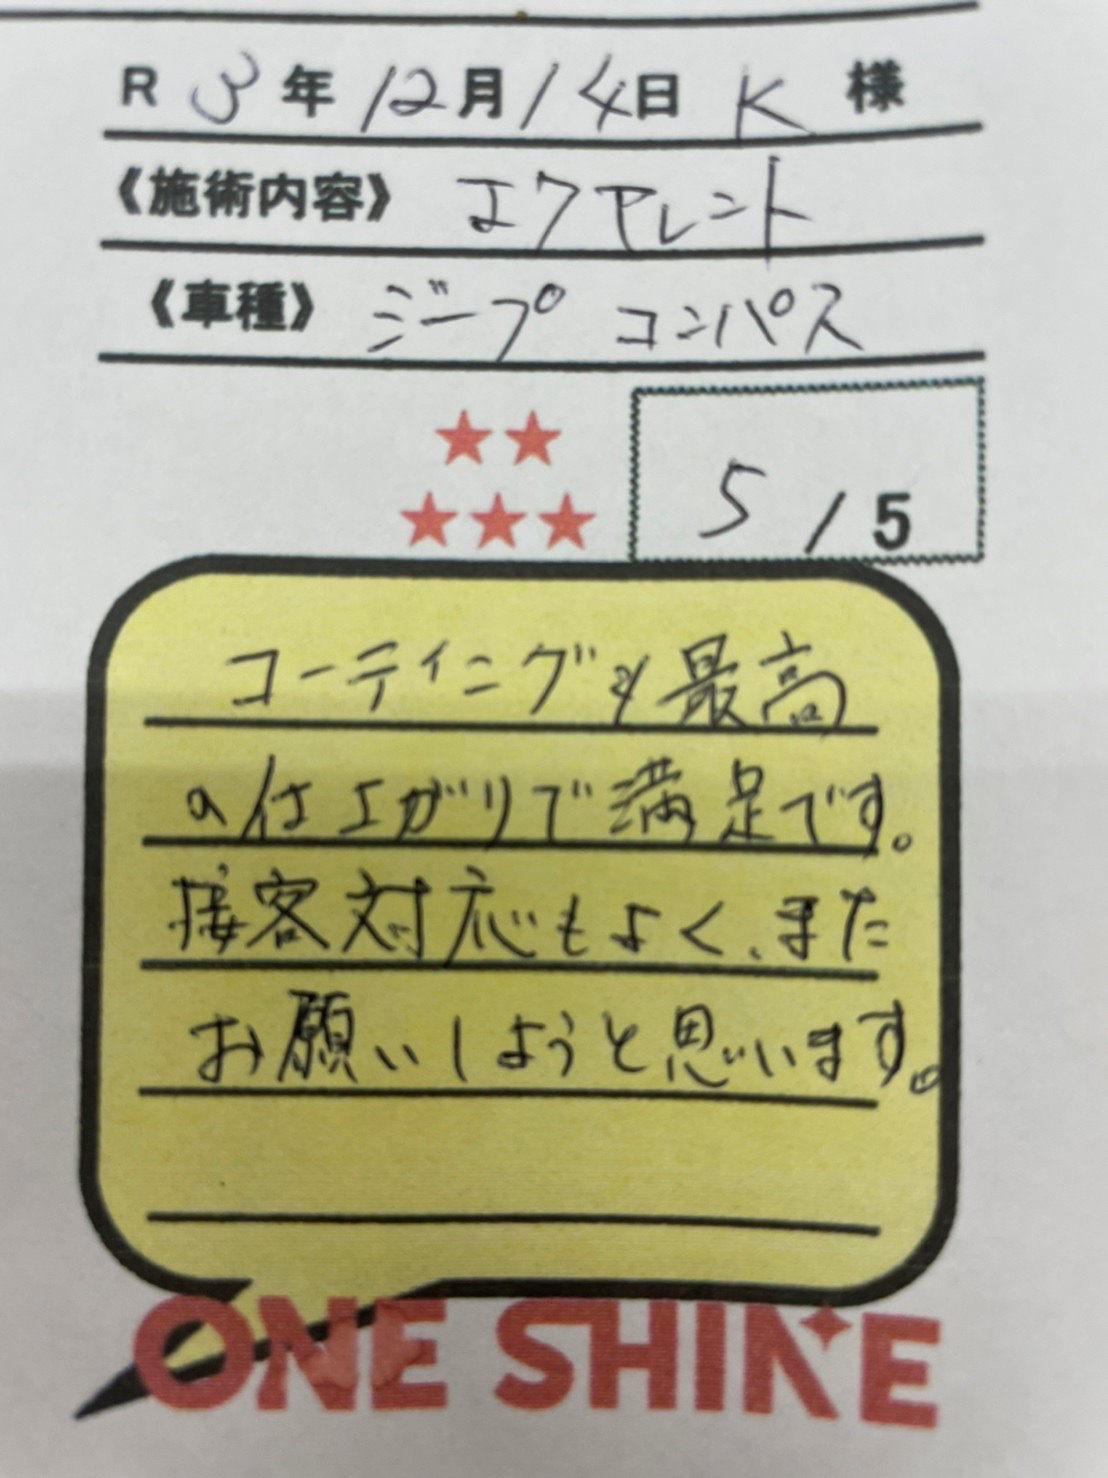 R 3年12月14日 K 様
《施術内容》 エクセレント
《車種》 ジープ コンパス
5 / 5
コーティングも最高
の仕上がりで満足です。
接客対応もよく、また
お願いしようと思います。
ONE SHINE